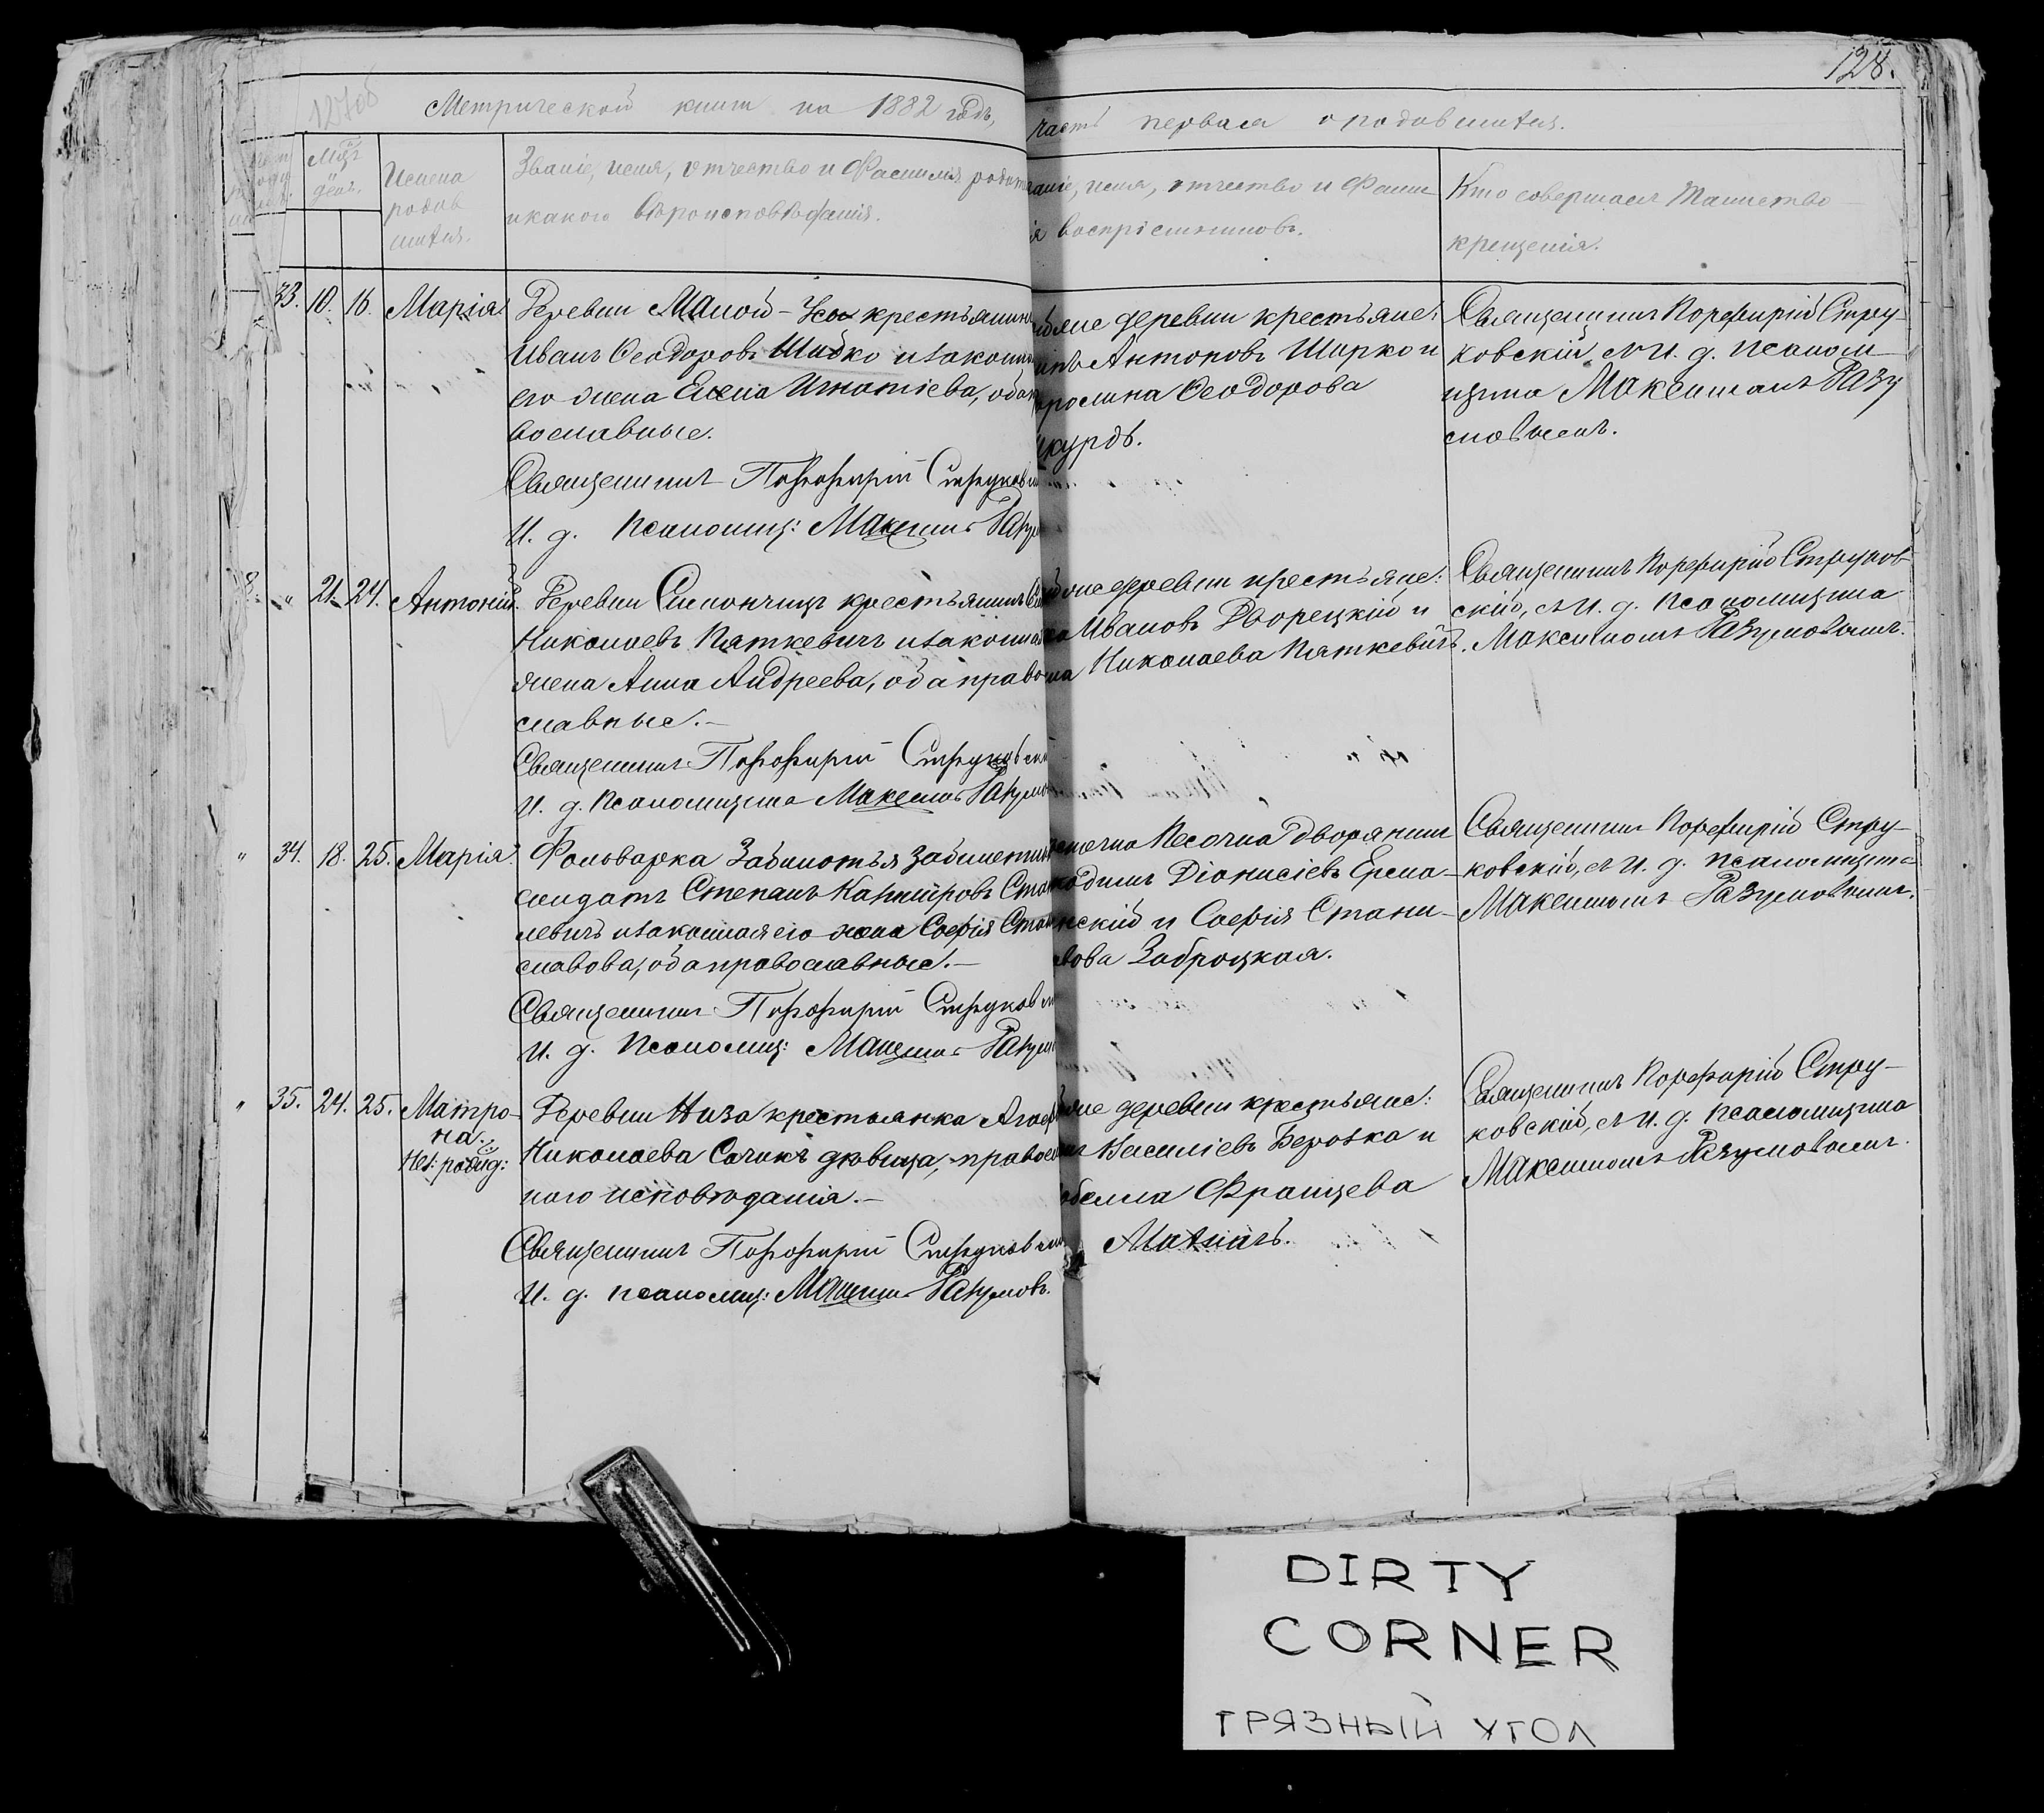 128.
127об
Метрической книги на 1882 годъ,
часть первая о родившихся.
Мцъ
день.
Имена
родив
шихся.
Званіе, имя, отчество и Фамилія родит
и какого вѣроисповѣданія.
ваніе, имя, отчество и Фами
ія воспріемниковъ.
Кто совершалъ Таинство
крещенія.
33. 10. 16. Марія.
Деревни Малой - крестьянинъ
Иванъ Ѳеодоровъ Шибко и законная
его жена Елена Игнатіева, оба
вославные.
Священникъ Порфирій Струков
И. д. Псаломщ: Максимъ Разум
деревни крестьяне:
Антоновъ Шарко и
Ѳеодорова
Священникъ Порфирій Стру-
ковскій, съ И. д. псалом-
щика Максимомъ Разу
мовымъ.
8. " 21. 24. Антоній.
Деревни Симончицъ крестьянинъ
Николаевъ Пяткевичъ и законная
жена Анна Андреева, оба право
славные.-
Священникъ Порфирій Струков
И. д. Псаломщика Максимъ Разумо
деревни крестьяне:
Ивановъ Дворецкій и
Николаева Пяткевичъ.
Священникъ Порфирій Струков
скій, съ И. д. Псаломщика
Максимомъ Разумовымъ.
" 34. 18. 25. Марія.
Фольварка Заблотья
солдатъ Степанъ Казиміровъ
левичъ и законная его жена Софія Стани
славова, оба православные.-
Священникъ Порфирій Струков
И. д. Псаломщ: Максимъ Разум
Песочна дворянинъ
Діонисіевъ Ерма-
и Софія Стани-
вова Заброцкая.
Священникъ Порфирій Стру-
ковскій, съ И. д. псаломщика
Максимомъ Разумовымъ.
" 35. 24. 25. Матро-
на.
Нез: рожд:
Деревни Низа крестьянка Агаф
Николаева Сачикъ дѣвица, правос
наго исповѣданія.-
Священникъ Порфирій Струков
И. д. псаломщ: Максимъ Разумовъ.
деревни крестьяне:
Василіевъ Березка и
Францева
Священникъ Порфирій Стру-
ковскій, съ И. д. псаломщика
Максимомъ Разумовымъ.
DIRTY
CORNER
ГРЯЗНЫЙ УГОЛ